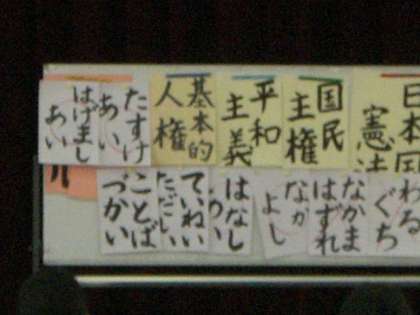 日本国
憲法
国民
主権
平和
主義
基本的
人権
たすけ
あい
はげまし
あい
わる
ぐち
なかま
はずれ
なか
よし
はなし
あい
ていねい
ただしい
ことば
づかい